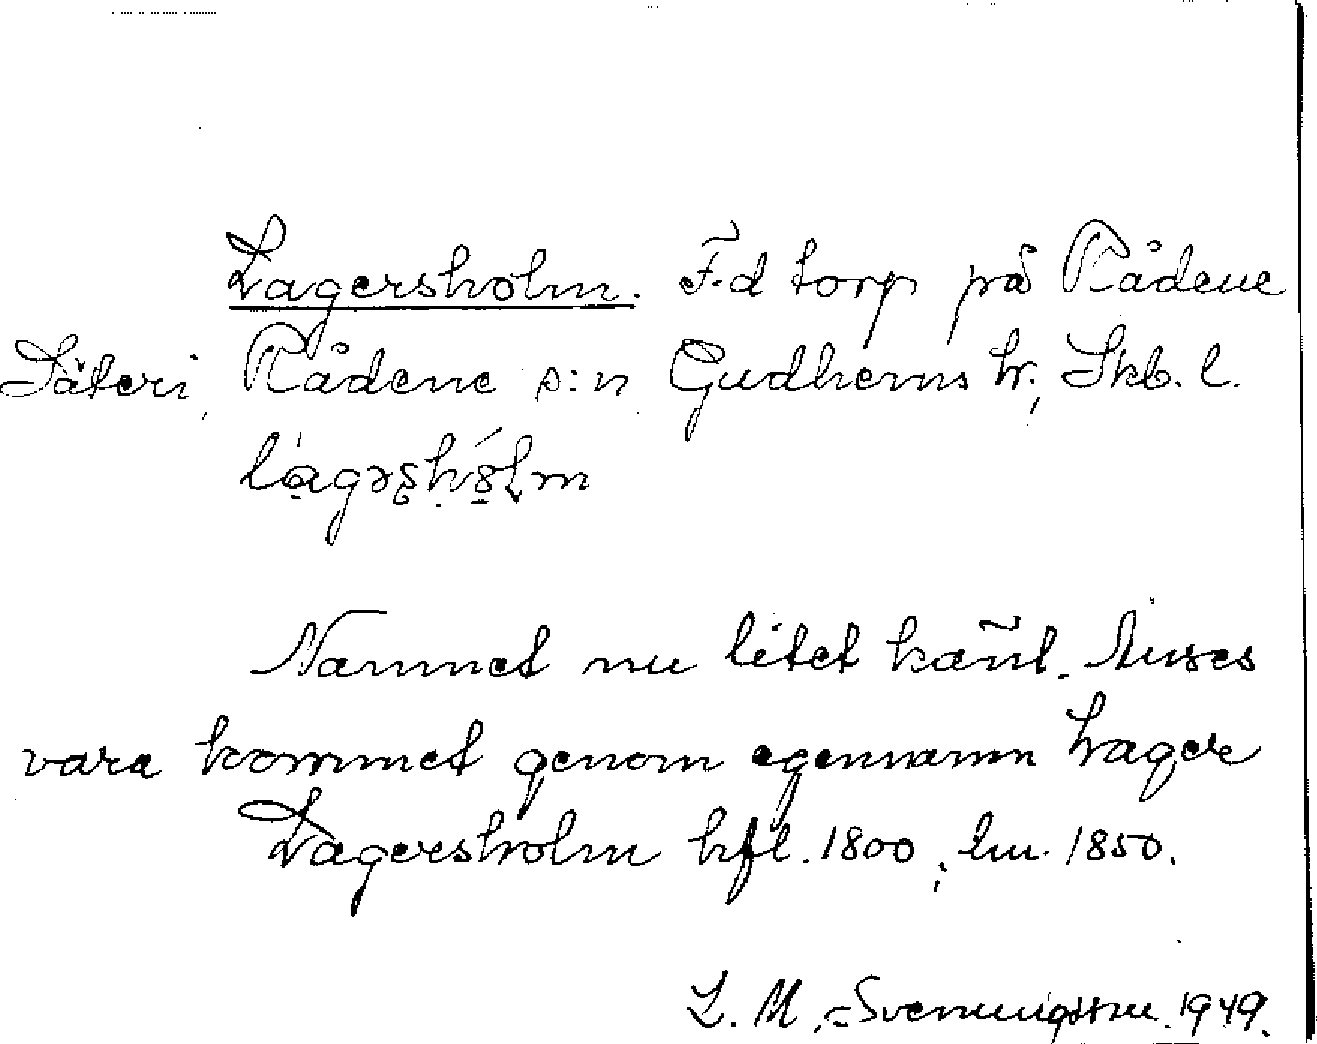 Lagersholm. F.d torp på Rådene
Säteri, Rådene s:n Gudhems hr, Skb. l.
Namnet nu litet känt. Anses
vara kommet genom egennamn Lager
Lagersholm hfl. 1800, lm. 1850.
L. M. Svenungsson 1949.